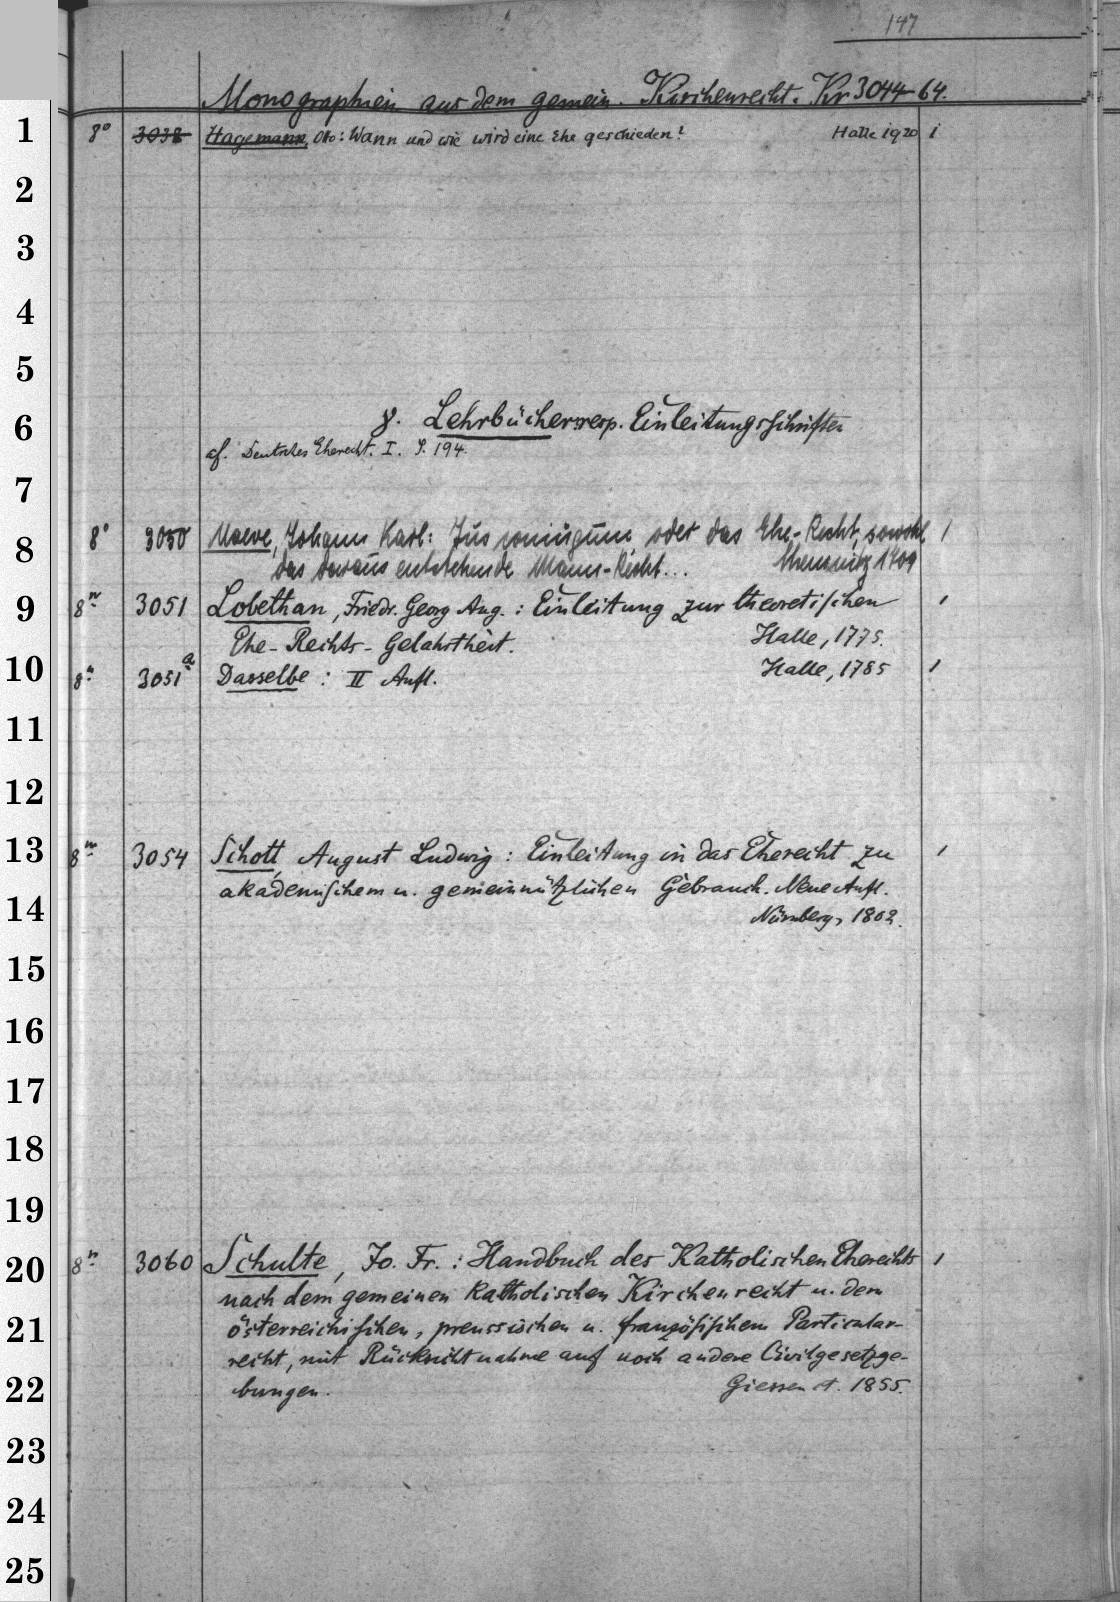 147
Monographien aus dem gemein. Kirchenrecht. Kr 3044-64.
1 8° 3038 Hagemann, Otto: Wann und wie wird eine Ehe geschieden? Halle 1920 1
2
3
4
5
6 γ. Lehrbücher resp. Einleitungsschriften
cf. Deutsches Eherecht. I. S. 194.
7
8° 3050 Johann Karl: Jus conjugum oder das Ehe-Recht, sowohl 1
8 das daraus entstehende Mann-Recht... Chemnitz
9 8° 3051 Lobethan, Friedr. Georg Aug.: Einleitung zur theoretischen 1
Ehe-Rechts-Gelahrtheit. Halle, 1775.
10 8° 3051a Dasselbe: II Aufl. Halle, 1785 1
11
12
13 8° 3054 Schott, August Ludwig: Einleitung in das Eherecht zu 1
akademischem u. gemeinnützlichen Gebrauch. Neue Aufl.
14 Nürnberg, 1802.
15
16
17
18
19
20 8° 3060 Schulte, Jo. Fr.: Handbuch des Katholischen Eherechts 1
nach dem gemeinen Katholischen Kirchenrecht u. dem
21 österreichischen, preussischen u. französischem Particular-
recht, mit Rücksichtnahme auf noch andere Civilgesetzge-
22 bungen. Giessen 1855.
23
24
25